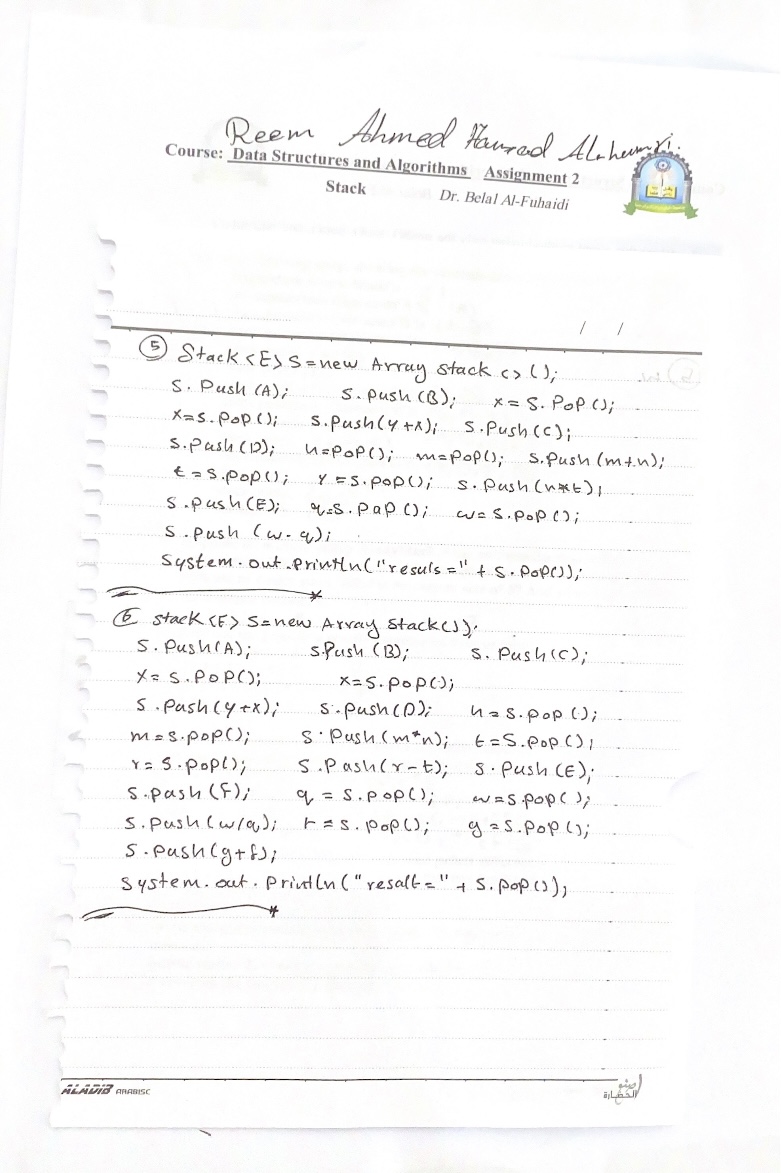 Reem Ahmed
Course: Data Structures and Algorithms Assignment 2
Stack Dr. Belal Al-Fuhaidi
/ /
5 Stack <E> S = new Array Stack <> ();
S. Push (A); S. push (B); x = S. Pop ();
x = S. pop (); S. push (y + x); S. Push (c);
S. push (D); n = pop (); m = pop (); S. push (m + n);
t = S. pop (); r = S. pop (); S. push (r * t);
S. push (E); q = S. pap (); w = S. pop ();
S. push (w - q);
System. out. println ("resuls =" + S. pop ());
6 Stack <E> S = new Array Stack ();
S. Push (A); S. Push (B); S. Push (C);
x = S. Pop (); x = S. pop ();
S. Push (y + x); S. push (D); n = S. pop ();
m = S. pop (); S. Push (m * n); t = S. pop ();
r = S. pop (); S. Push (r - t); S. Push (E);
S. push (f); q = S. pop (); w = S. pop ();
S. push (w / q); = S. pop (); g = S. pop ();
S. Push (g + f);
System. out. Println ("resalt =" + S. pop ());
ALADIB ARABISC